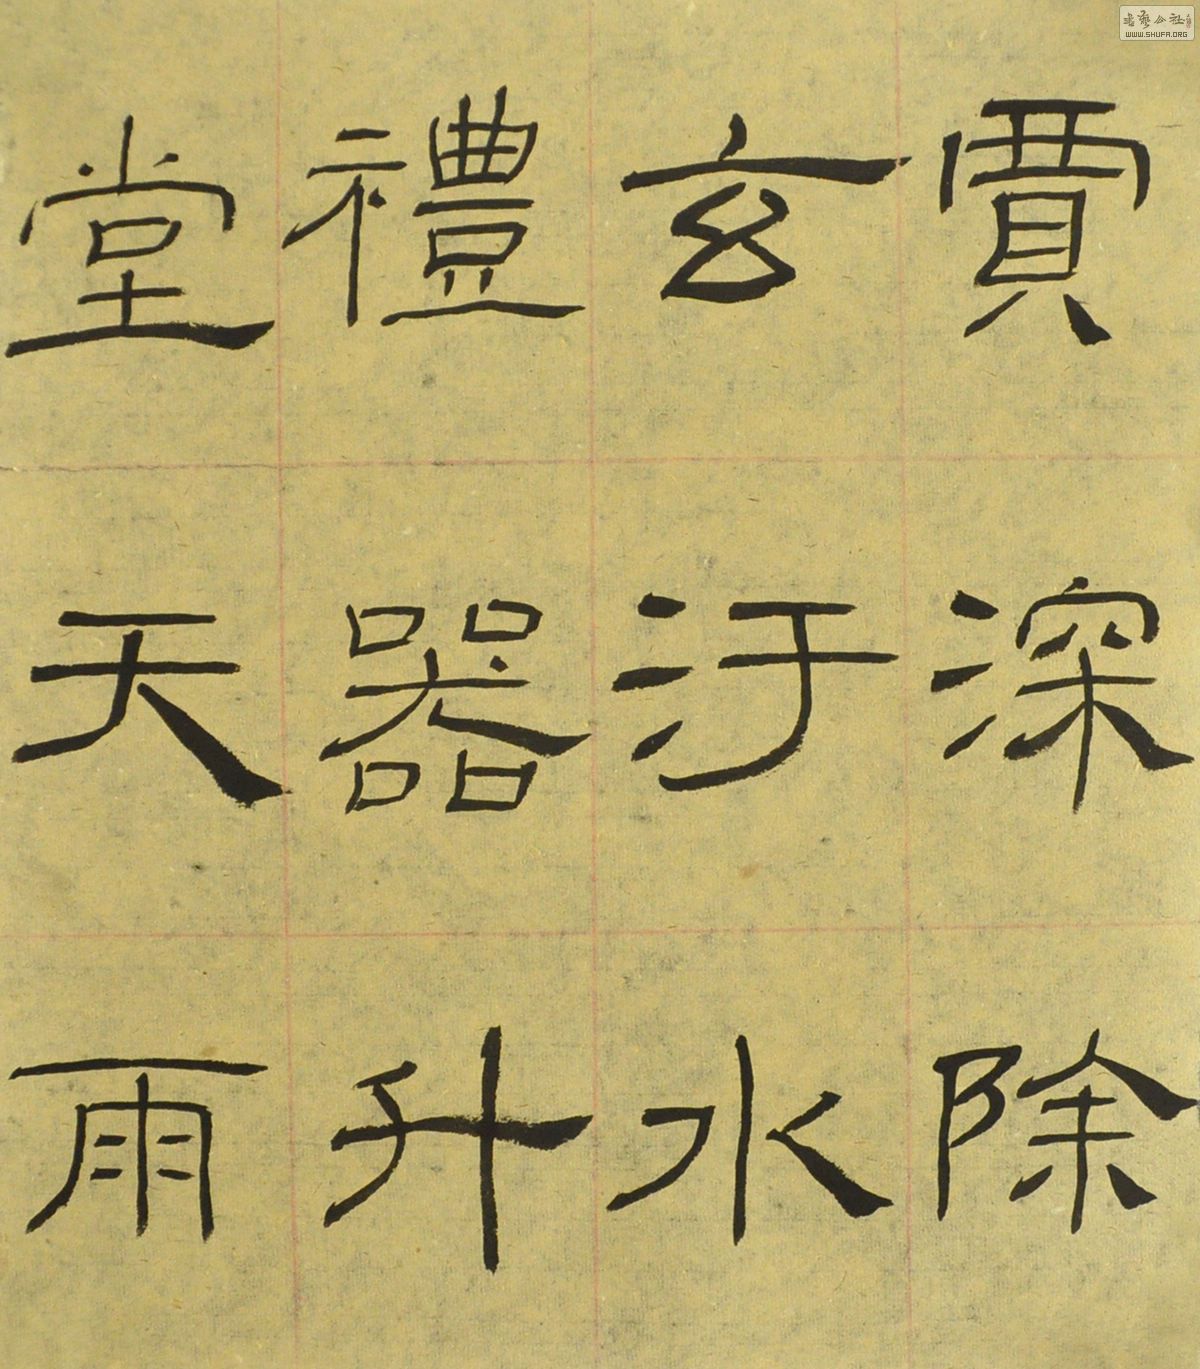 賈深除
玄汙水
禮器升
堂天雨
書藝公社
WWW.SHUFA.ORG